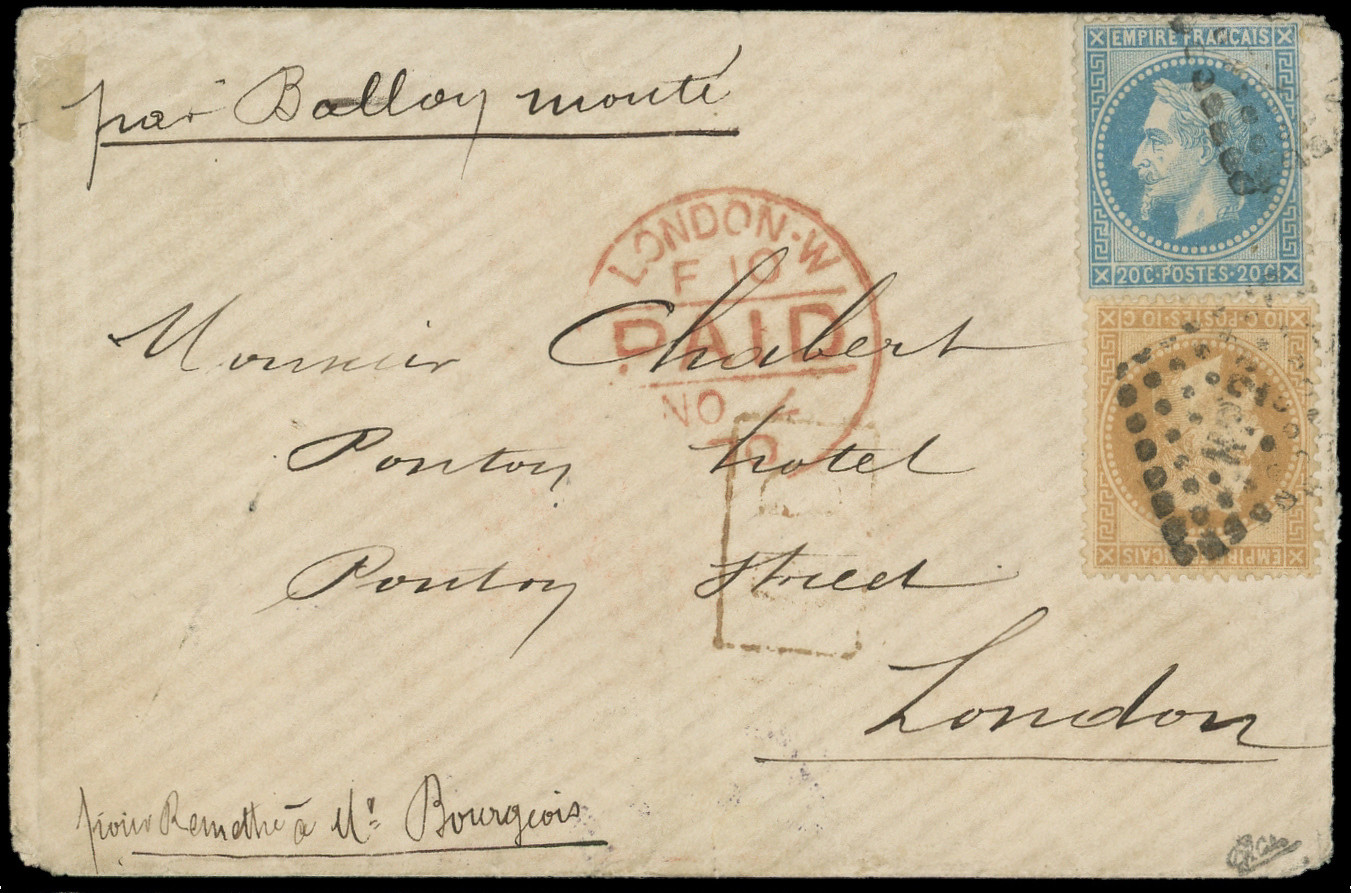 par Ballon monté
EMPIRE FRANÇAIS
20 C·POSTES·20
LONDON·W
F 10
PAID
NO 4
70
10 C·POSTES·10 C
EMPIRE FRANÇAIS
Monsieur Chabert
Ponton hotel
Ponton Street
London
pour Remettre à Mr Bourgeois